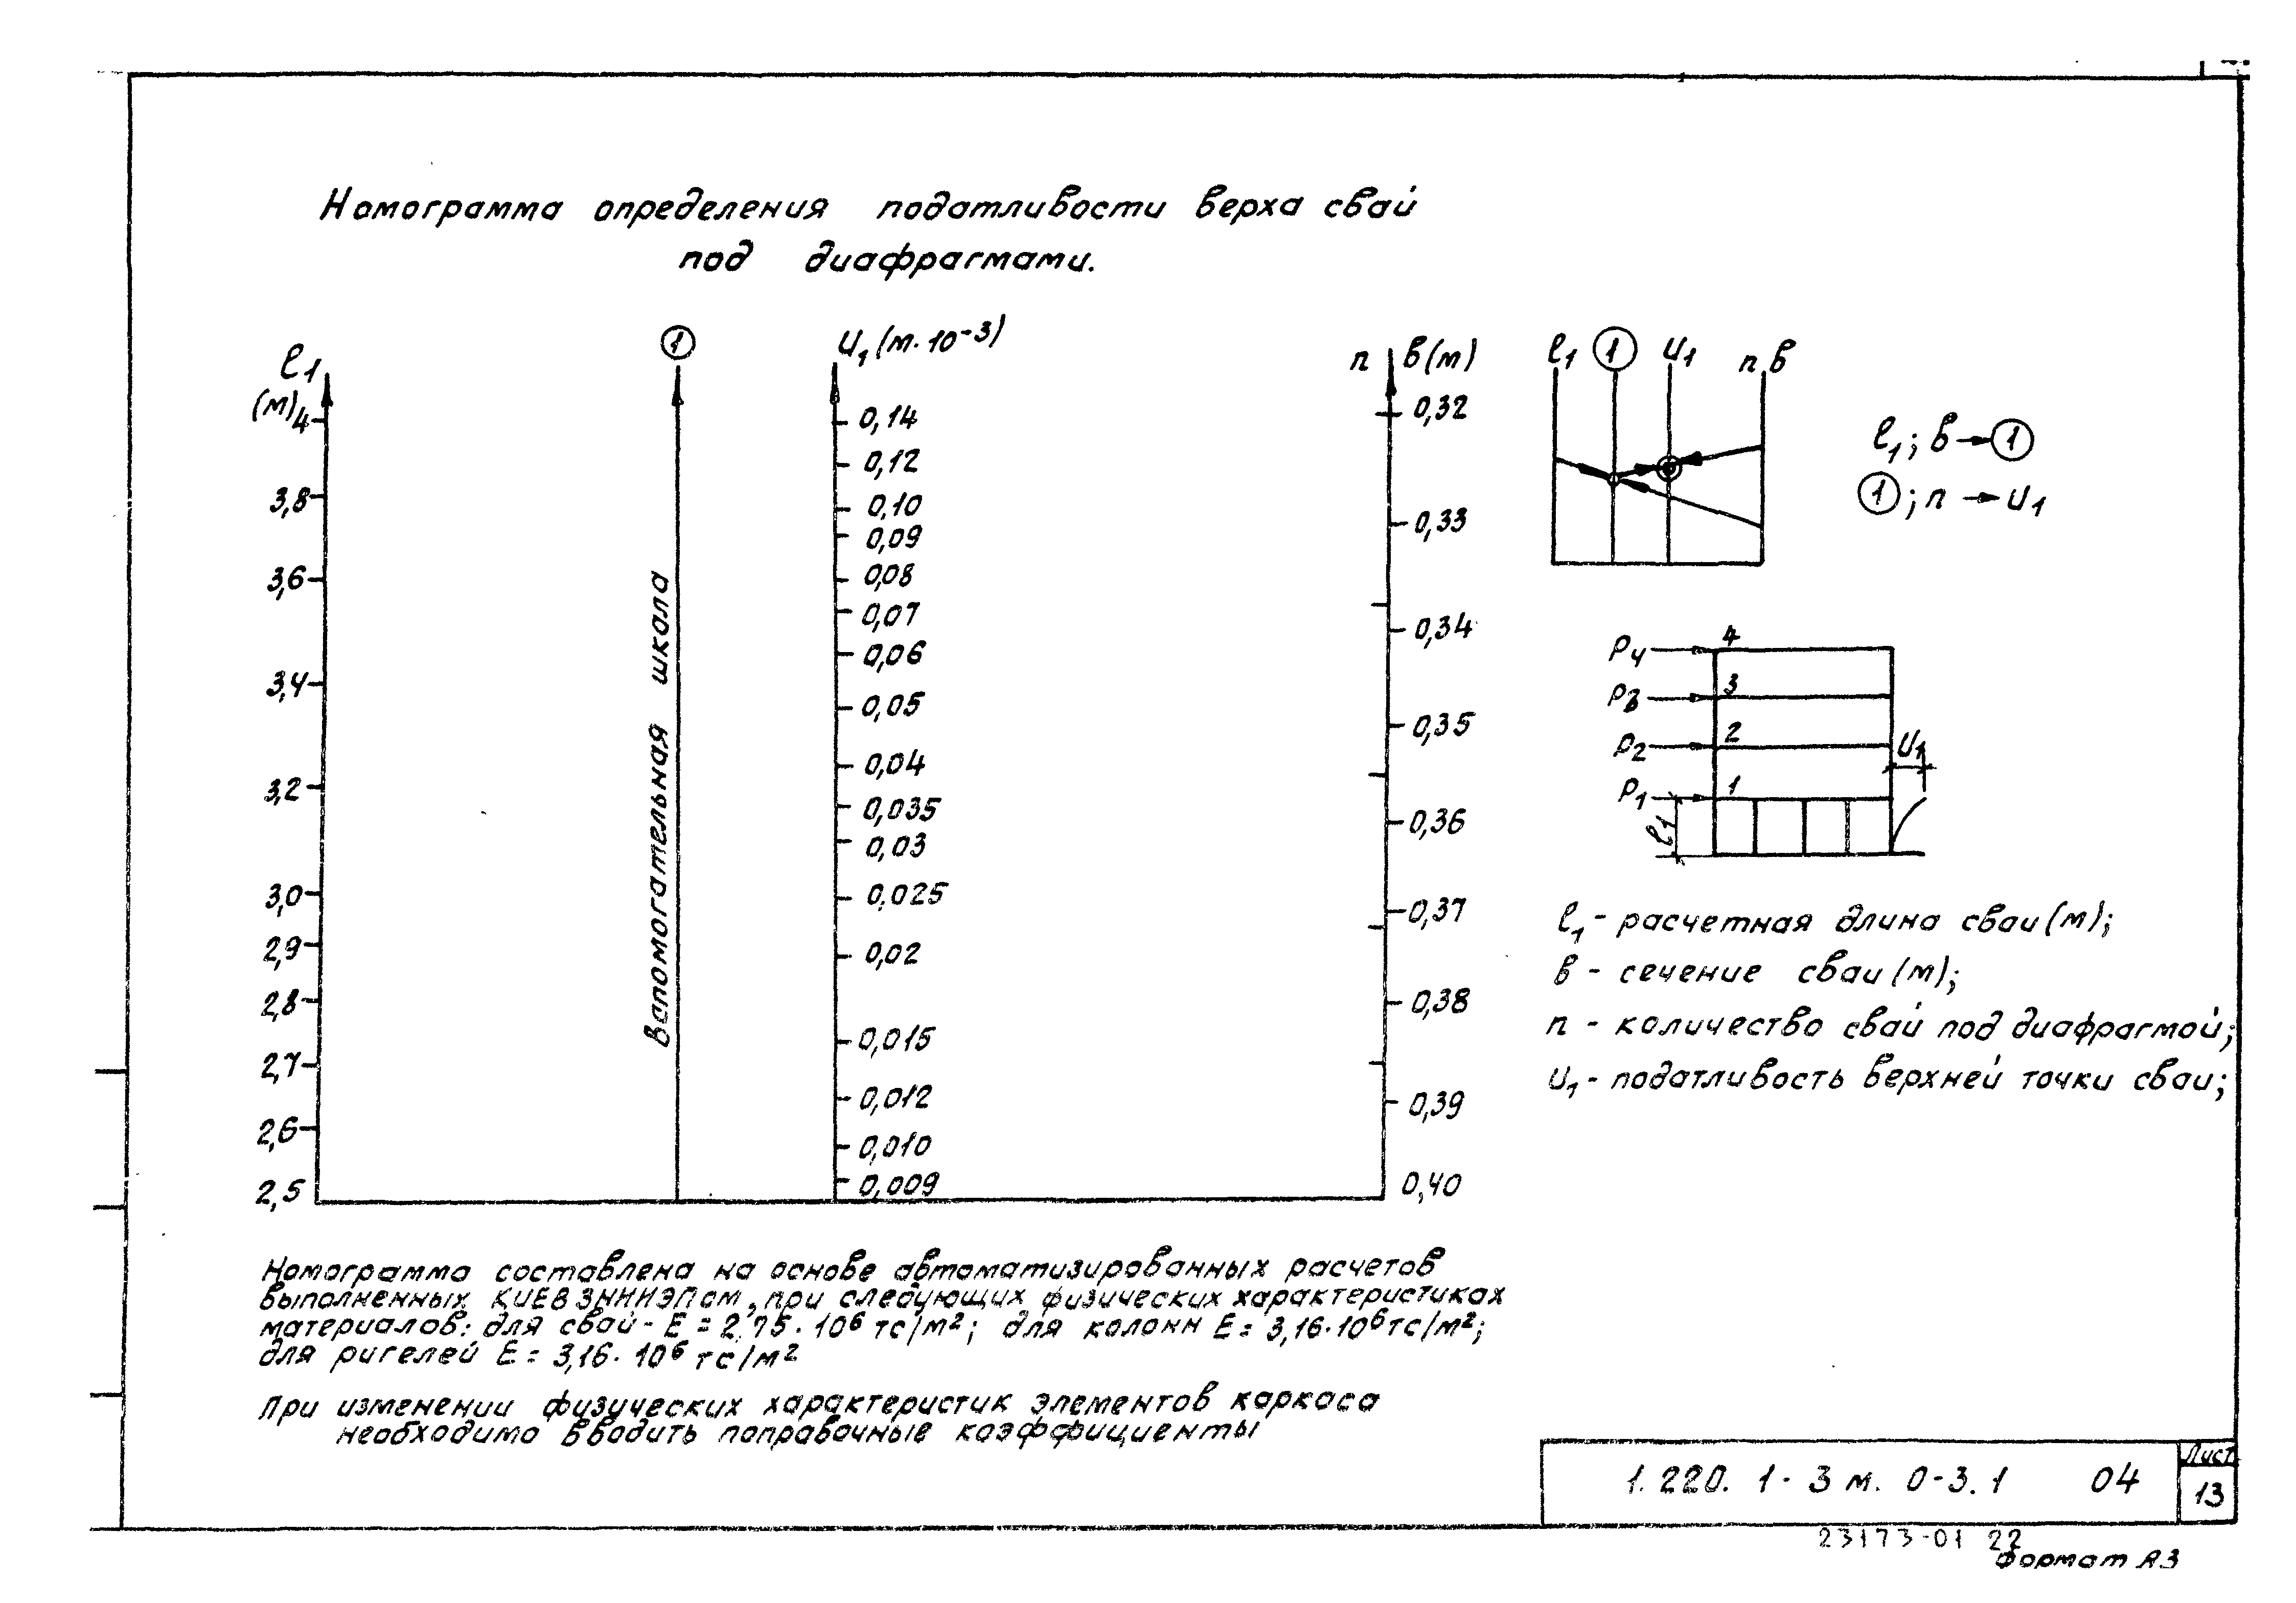 Номограмма определения податливости верха свай
под диафрагмами.
ℓ1
(м)
4
3,8
3,6
3,4
3,2
3,0
2,9
2,8
2,7
2,6
2,5
1
Вапомогательная шкала
U1 (м·10⁻³)
0,14
0,12
0,10
0,09
0,08
0,07
0,06
0,05
0,04
0,035
0,03
0,025
0,02
0,015
0,012
0,010
0,009
n в(м)
0,32
0,33
0,34
0,35
0,36
0,37
0,38
0,39
0,40
ℓ1 1 U1 n в
ℓ1; в → 1
1; n → U1
P4 4
P3 3
P2 2
P1 1
U1
ℓ1
ℓ1 - расчетная длина сваи (м);
в - сечение сваи (м);
n - количество свай под диафрагмой;
U1 - податливость верхней точки сваи;
Номограмма составлена на основе автоматизированных расчетов
выполненных КИЕВЗНИИЭПом, при следующих физических характеристиках
материалов: для свай - E = 2,75·10⁶ тс/м²; для колонн E = 3,16·10⁶ тс/м²;
для ригелей E = 3,16·10⁶ тс/м²
При изменении физических характеристик элементов каркаса
необходимо вводить поправочные коэффициенты
1.220.1-3м.0-3.1 04
Лист
13
23173-01 22
Формат А3